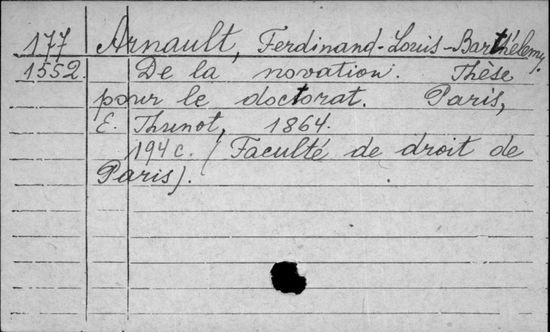 177 Arnault, Ferdinand-Louis-Barthélemy.
1552. De la novation. Thèse
pour le doctorat. Paris,
E. Thunot, 1864.
194 c. (Faculté de droit de
Paris).